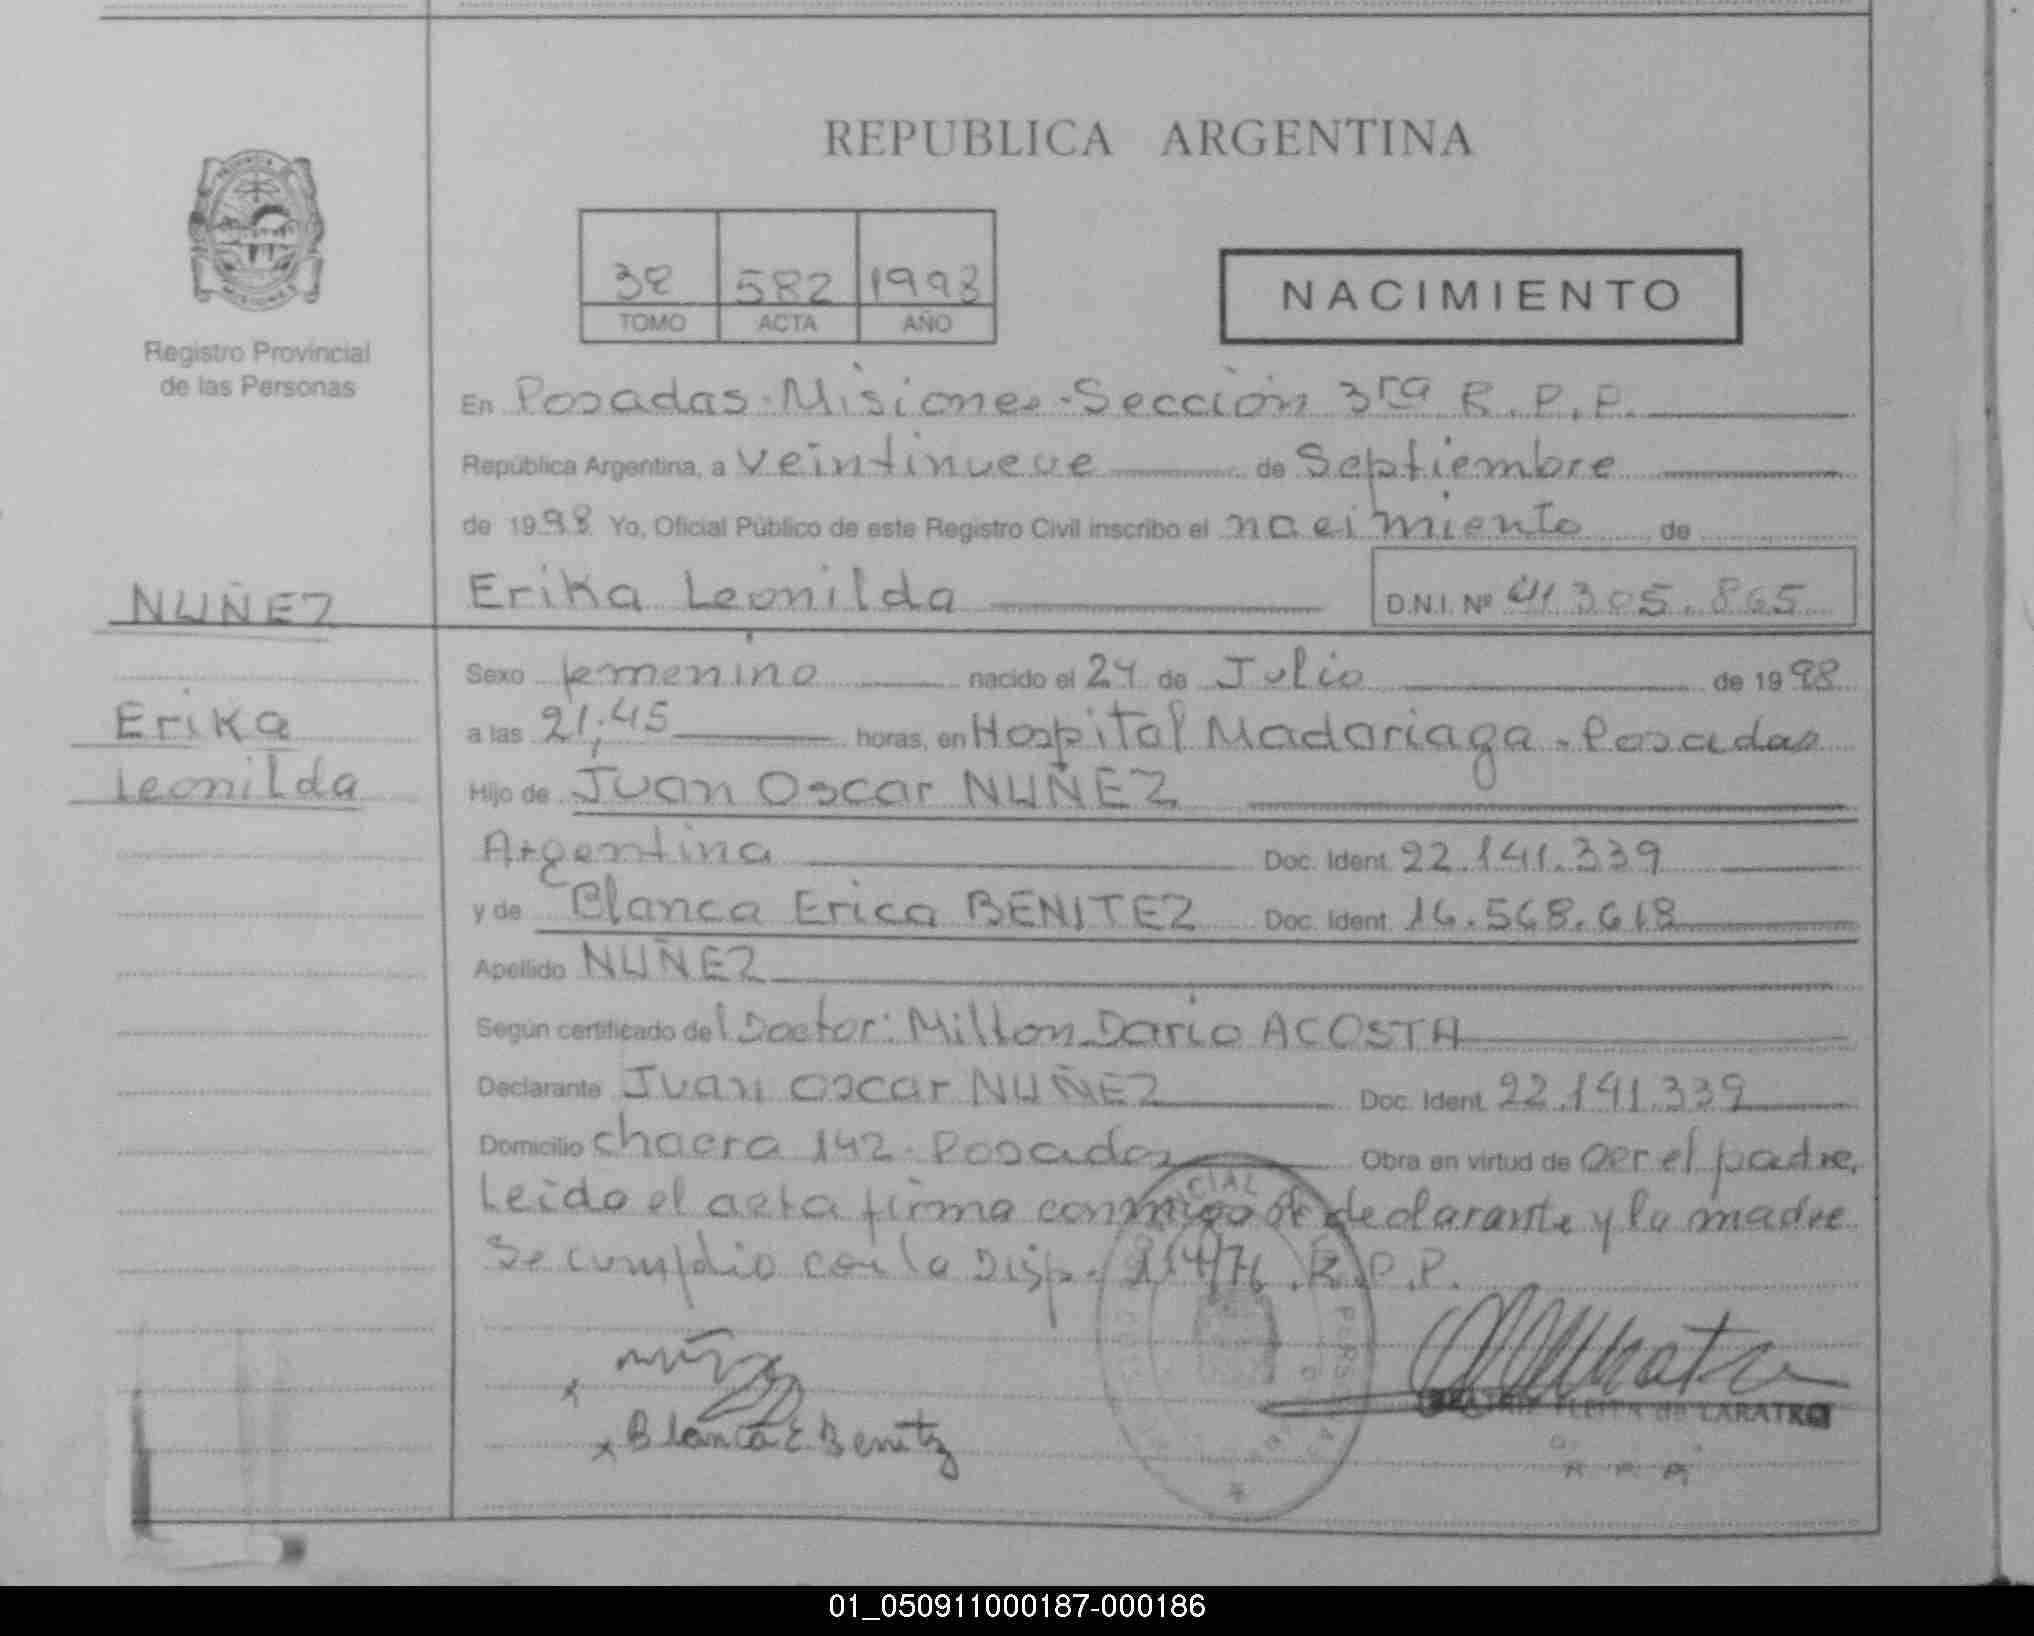 REPUBLICA ARGENTINA
38 582 1998
TOMO ACTA AÑO
NACIMIENTO
Registro Provincial
de las Personas
En Posadas - Misiones - Sección 3ra R.P.P.
República Argentina, a veintinueve de Septiembre
de 1998 Yo, Oficial Público de este Registro Civil inscribo el nacimiento de
NUÑEZ
Erika Leonilda D.N.I. Nº 41.305.865
Sexo femenino nacido el 24 de Julio de 1998
Erika
a las 21,45 horas, en Hospital Madariaga - Posadas
Leonilda
Hijo de Juan Oscar NUÑEZ
Argentina Doc. Ident. 22.141.339
y de Blanca Erica BENITEZ Doc. Ident. 16.568.618
Apellido NUÑEZ
Según certificado del Doctor: Milton Dario ACOSTA
Declarante Juan Oscar NUÑEZ Doc. Ident. 22.141.339
Domicilio chacra 142 - Posadas Obra en virtud de ser el padre,
Leido el acta firma conmigo el declarante y la madre
Se cumplio con la Disp. 114/76 R.P.P.
x
x Blanca E. Benitez
FLEITA de LARATRO
01_050911000187-000186